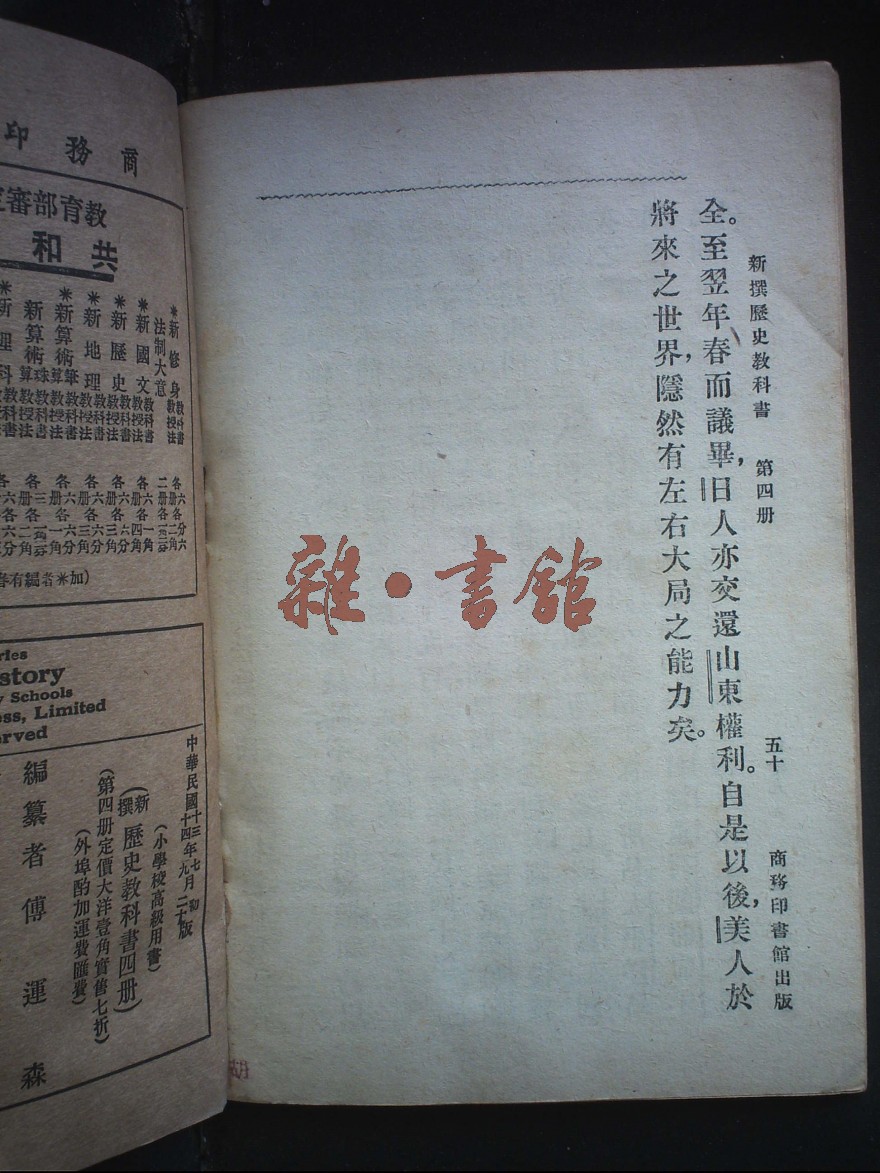 新撰歷史教科書 第四册 五十 商務印書館出版
全。至翌年春而議畢，日人亦交還山東權利。自是以後，美人於
將來之世界，隱然有左右大局之能力矣。
雜·書館
商務印
教育部審定
共和
＊新修身教科書教授法 各六册各二角六分
法制大意 二册各
＊新國文教科書教授法 各六册各四角
＊新歷史教科書教授法 各六册各三角六分
＊新地理教科書教授法 各六册各三角六分
＊新算術筆算教科書教授法 各六册各一角六分
新算術珠算教科書教授法 各三册各二角
＊新理科教科書教授法 各六册各三角六分
(加＊者編有春
ries
story
y Schools
ess, Limited
erved
中華民國十三年七月初版
十四年九月二十版
(小學校高級用書)
(新撰歷史教科書四册)
(第四册定價大洋壹角實售七折)
(外埠酌加運費匯費)
編纂者傅運森
胡